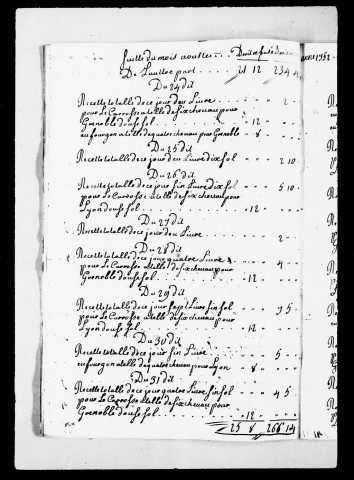 Suitte du mois aoust
De l'auttre part 21 12 234 4
Du 24 dit
Recette totalle de ce jour deu Livre 2
pour Le Carrosse atelle de six chevau pour
Grenoble douse sol 12
un fourgon atelle de quatre chevau pour Grenoble 8
Du 25 dit
Recette totalle de ce jour deu Livre dix sol 2 10
Du 26 dit
Recette totalle de ce jour sin Livre dix sol 5 10
pour Le Carrosse atelle de six chevau pour
Lyon douse sol 12
Du 27 dit
Recette totalle de ce jour deu Livre 2
Du 28 dit
Recette totalle de ce jour quatre Livre 4
pour Le Carrosse atelle de six chevau pour
Grenoble douse sol 12
Du 29 dit
Recette totalle de ce jour sept Livre sin sol 7 5
pour Le Carrosse atelle de six chevau pour
Lyon douse sol 12
Du 30 dit
Recette totalle de ce jour sin Livre 5
un fourgon atelle de quatre chevau pour Lyon 8
Du 31 dit
Recette totalle de ce jour quatre Livre sin sol 4 5
pour Le Carrosse atelle de six chevau pour
Grenoble douse sol 12
25 8 266 14
1752